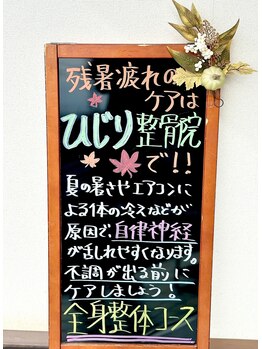 残暑疲れの
ケアは
ひじり整骨院
で!!
夏の暑さやエアコンに
よる体の冷えなどが
原因で、自律神経
が乱れやすくなります。
不調が出る前に
ケアしましょう!
全身整体コース